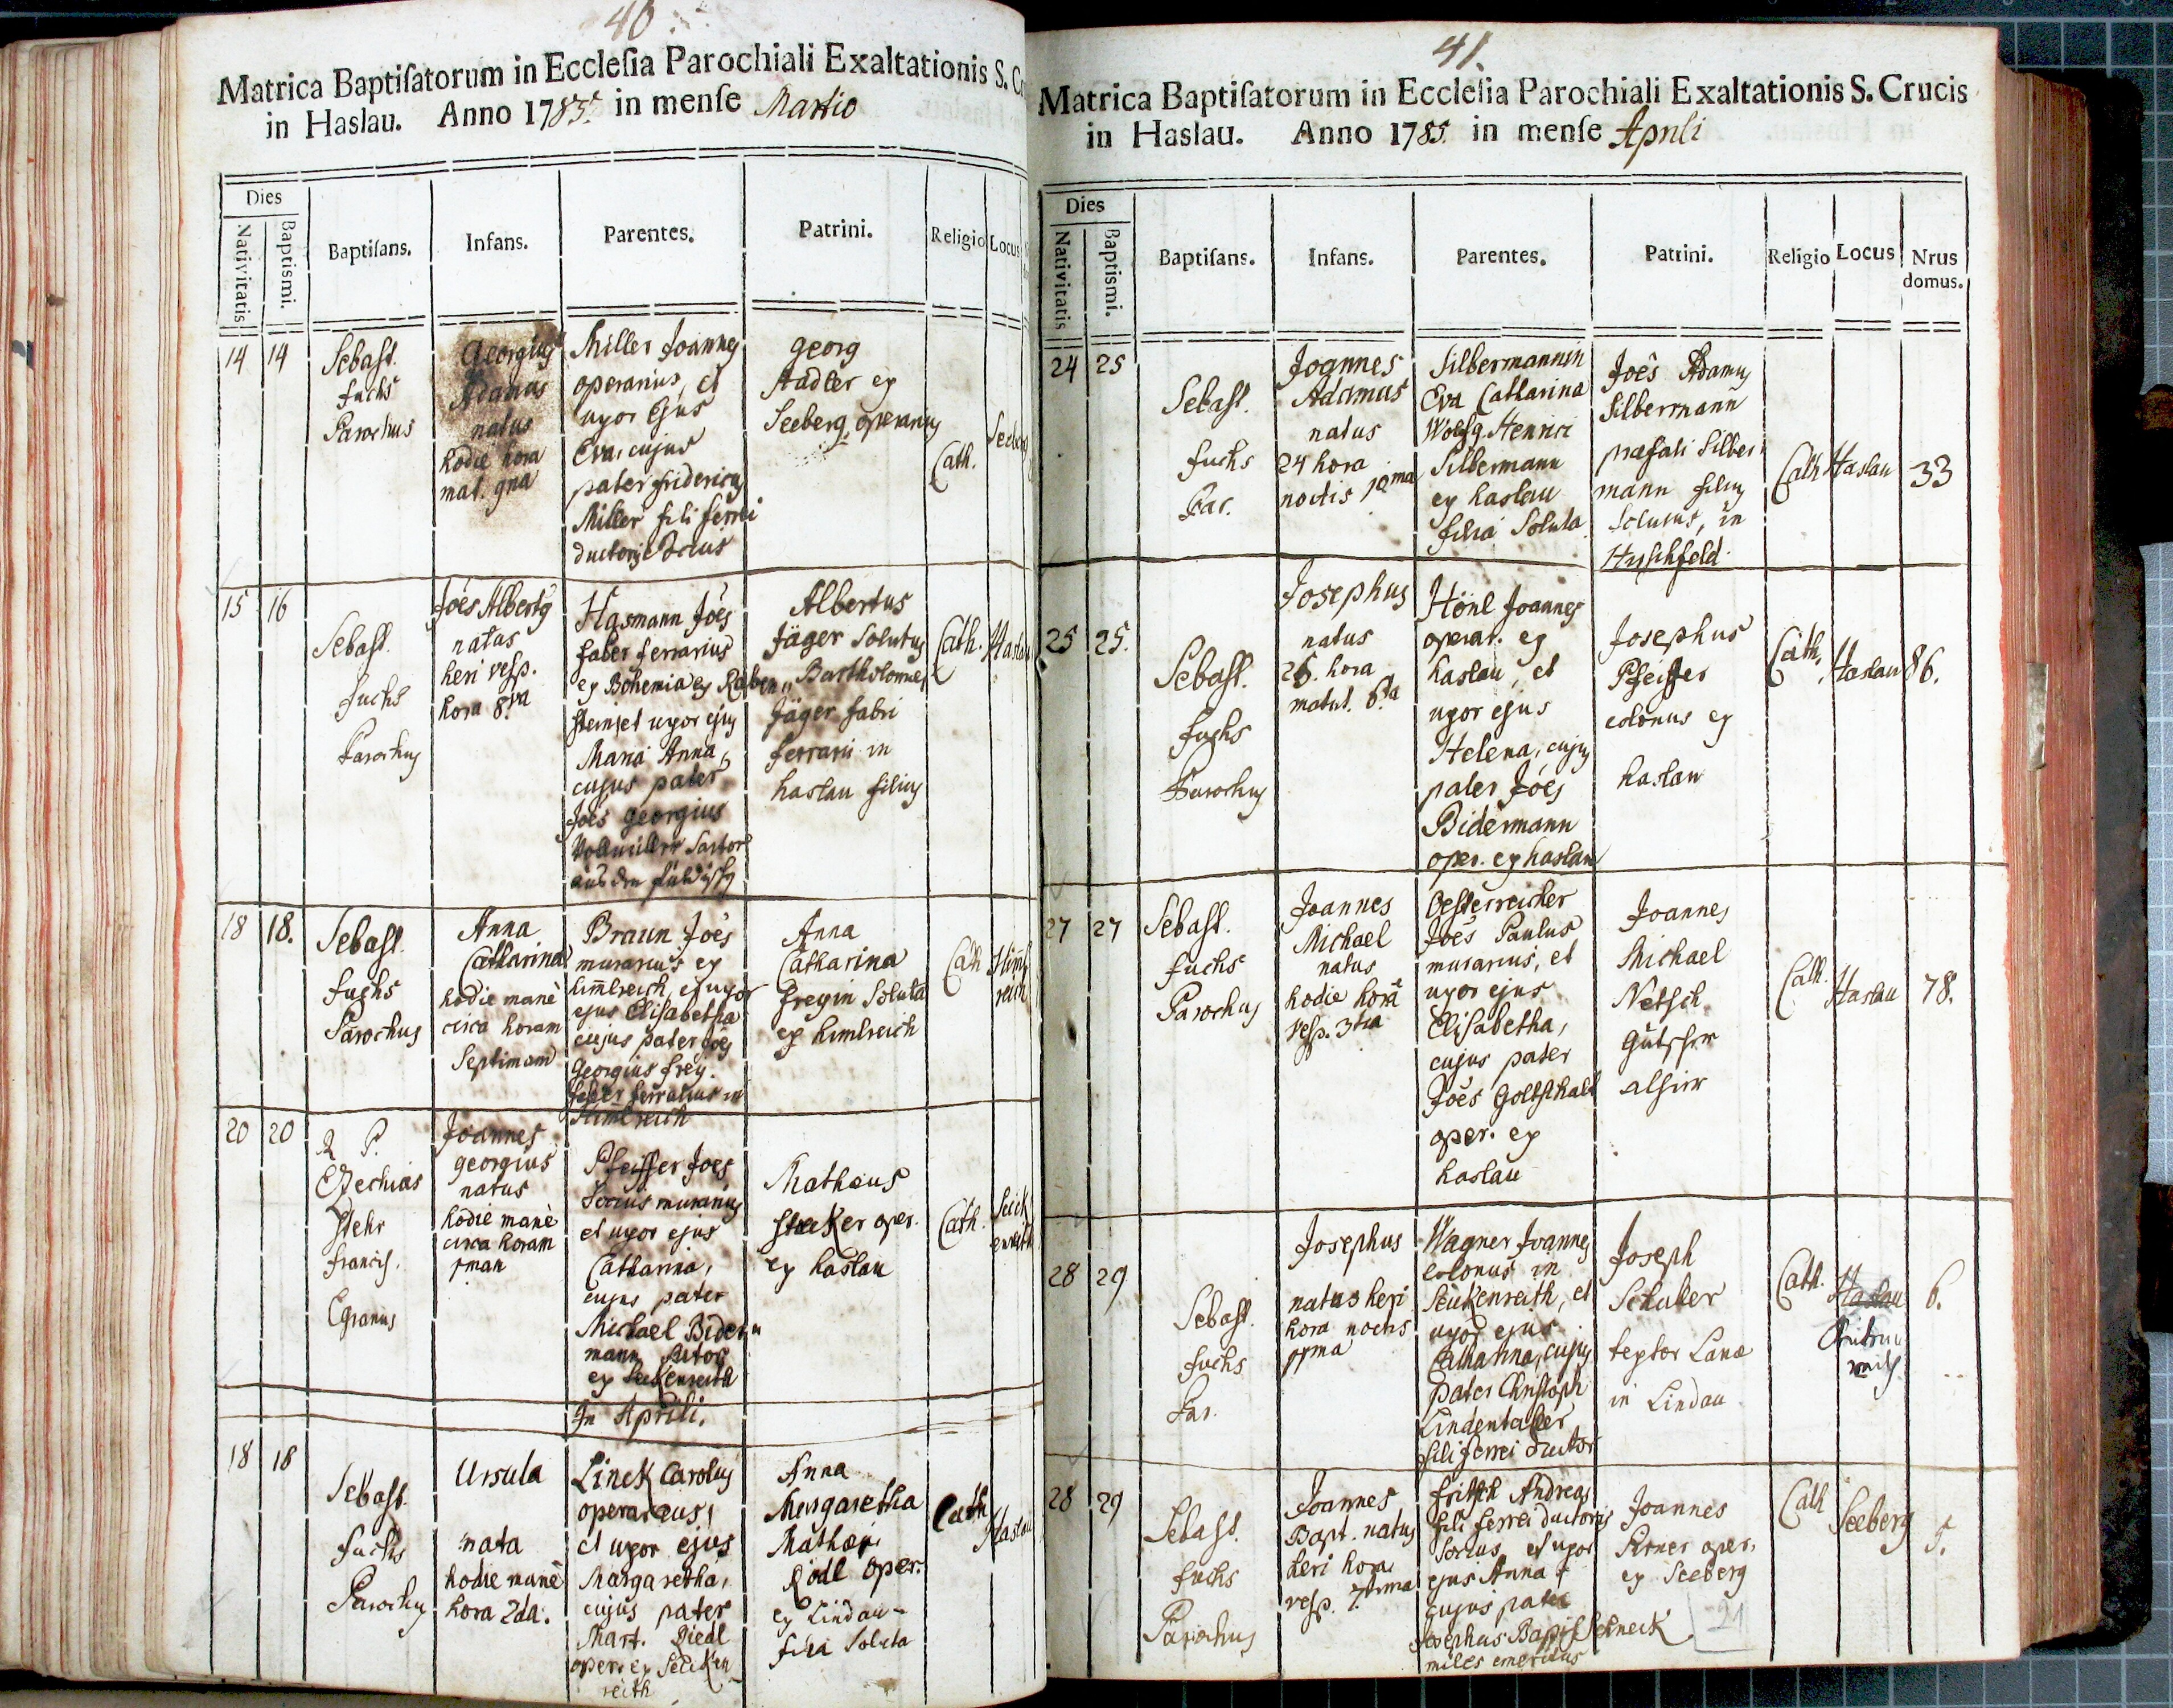 40
Matrica Baptiſatorum in Eccleſia Parochiali Exaltationis S. C
in Haslau. Anno 1785. in menſe Martio
Dies
Nativitatis
Baptismi.
Baptiſans.
Infans.
Parentes.
Patrini.
Religio
Locus
14
14
Sebast.
fuchs
Parochus
Georgius
Adamus
natus
hodie hora
mat. 9na
Miller Joannes
operarius, et
uxor Ejus
Eva, cujus
pater fridericus
Miller fili ferrei
ductoris Socius
Georg
Stadler ex
Seeberg operarius
Cath.
Seeberg
15
16
Sebast.
fuchs
Parochus
Joes Albertus
natus
heri vesp.
hora 8va
Hasmann Joes
faber ferrarius
ex Bohemia ex Raben
stein et uxor ejus
Maria Anna,
cujus pater
Joes Georgius
Vollmiller Sartor
Albertus
Jäger Solutus
Bartholomei
Jäger fabri
ferrarii in
haslau filius
Cath.
Haslau
18
18.
Sebast.
fuchs
Parochus
Anna
Catharina
hodie manè
circa horam
Septimam
Braun Joes
murarius ex
himlreich, et uxor
ejus Elisabetha
cujus pater Joes
Georgius frey.
faber ferrarius in
Himlreich
Anna
Catharina
freyin Soluta
ex himlreich
Cath
Himl
reich
20
20
R. P.
Ezechias
Stehr
francis.
Egranus
Joannes
georgius
natus
hodie manè
circa horam
1mam
Pfeiffer Joes
Socius murarius
et uxor ejus
Catharina,
cujus pater
Michael Bider
mann Sutor
ex Seikenreith
Matheus
Stecker oper.
ex haslau
Cath.
Seick
enreith
In Aprili.
18
18
Sebast.
fuchs
Parochus
Ursula
nata
hodie manè
hora 2da.
Linck Carolus
operarius,
et uxor ejus
Margaretha,
cujus pater
Mart. Riedl
oper. ex Seicken
reith
Anna
Margaretha
Mathaei
Rödl oper.
ex Lindau
filia Soluta
Cath
Haslau
41.
Matrica Baptiſatorum in Eccleſia Parochiali Exaltationis S. Crucis
in Haslau. Anno 1785. in menſe Aprili
Dies
Nativitatis
Baptismi.
Baptiſans.
Infans.
Parentes.
Patrini.
Religio
Locus
Nrus
domus.
24
25
Sebast.
fuchs
Par.
Joannes
Adamus
natus
24 hora
noctis 10ma
Silbermannin
Eva Catharina
Wolfg. Henrici
Silbermann
ex haslau
filia Soluta
Joes Adamus
Silbermann
praefati Silber
mann filius
Solutus, in
Hirschfeld.
Cath
Haslau
33
25
25.
Sebast.
fuchs
Parochus
Josephus
natus
25. hora
matut. 6ta
Hönl Joannes
operar. ex
haslau, et
uxor ejus
Helena, cujus
pater Joes
Bidermann
oper. ex haslau
Josephus
Pfeiffer
colonus ex
haslau
Cath.
Haslau
86.
27
27
Sebast.
fuchs
Parochus
Joannes
Michael
natus
hodie horâ
vesp. 3tia
Oesterreicher
Joes Paulus
murarius, et
uxor ejus
Elisabetha,
cujus pater
Joes Goltschald
oper. ex
haslau
Joannes
Michael
Netsch
Cath.
Haslau
78.
28
29
Sebast.
fuchs
Par.
Josephus
natus heri
hora noctis
11ma
Wagner Joannes
colonus in
Seickenreith, et
uxor ejus
Catharina, cujus
pater Christoph
Lindentaller
fili ferrei ductor
Joseph
Schuller
textor Lanae
in Lindau
Cath.
Haslau
6.
28
29
Sebast.
fuchs
Parochus
Joannes
Bapt. natus
heri hora
vesp. 7tima
fritsch Andreas
fili ferrei ductoris
Socius, et uxor
ejus Anna,
cujus pater
Josephus Bapt. Schneck
miles emeritus
Joannes
Kirner oper.
ex Seeberg
Cath
Seeberg
5.
21